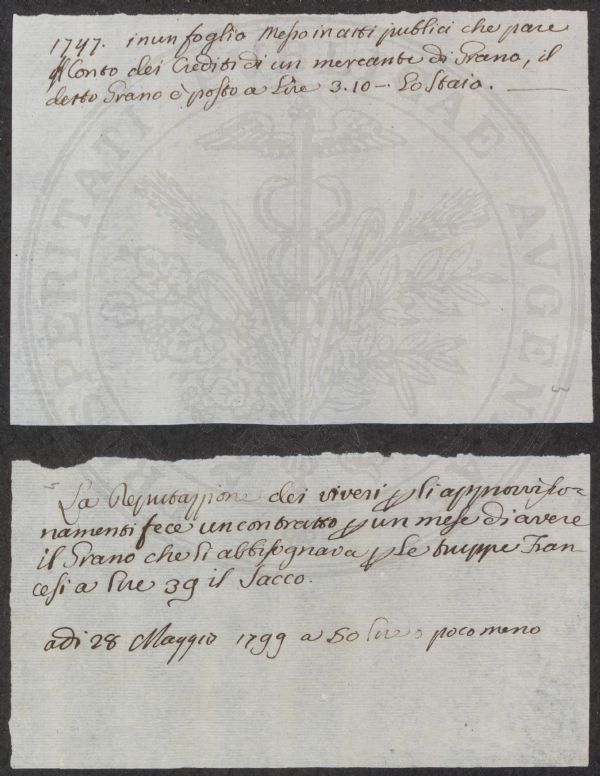 1747. in un foglio Messo in atti publici che pare
Conto dei Crediti di un mercante di Grano, il
detto Grano è posto a Lire 3.10 -. Lo Staio.
La Deputazzione dei viveri li approvisio-
namenti fece un contratto un mese di avere
il Grano che li abbisognava Le truppe Fran-
cesi a lire 39 il Sacco.
adi 28 Maggio 1799 a 50 lire o poco meno
PROSPERITATI PUBLICAE AVGENDAE